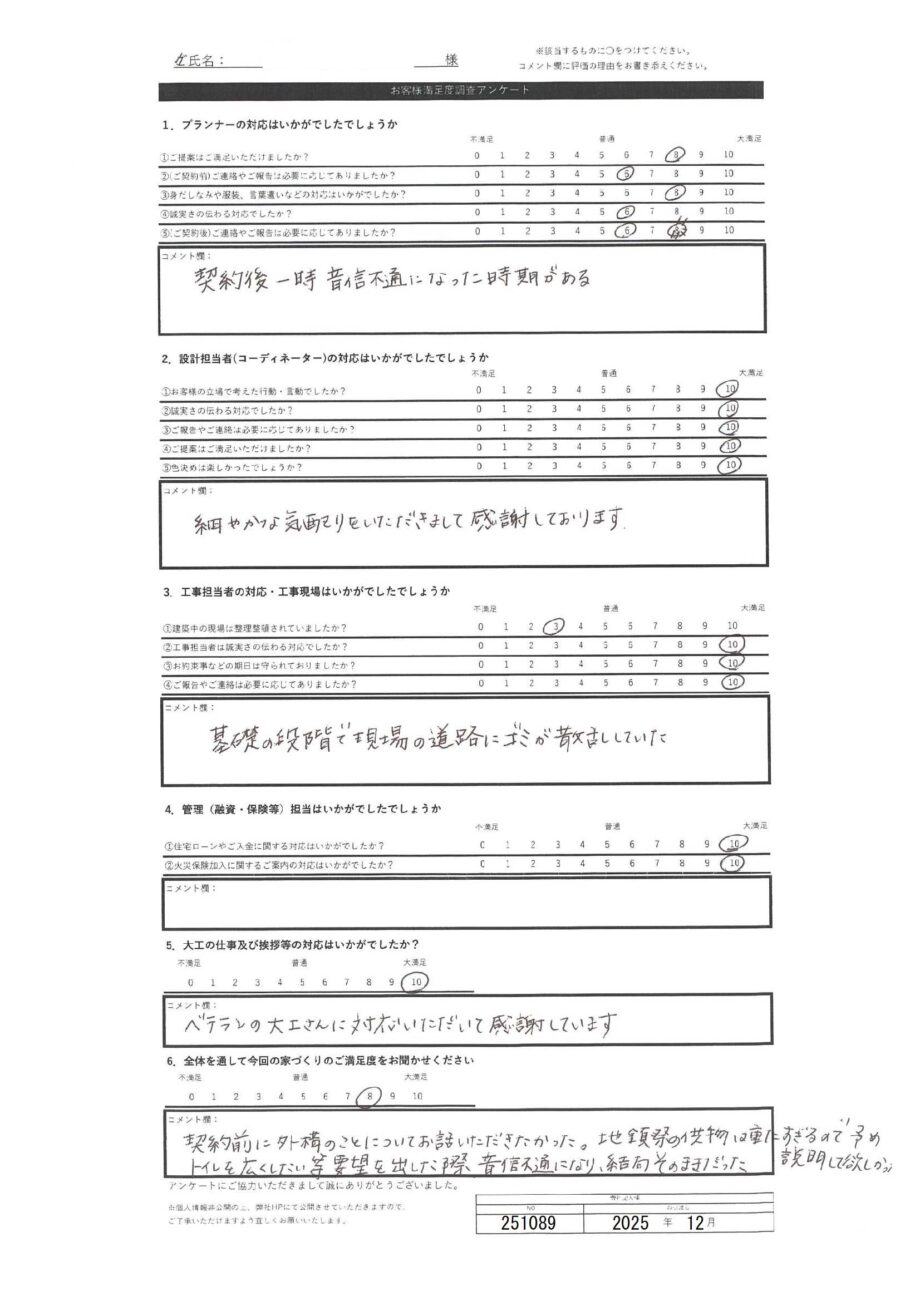 氏名： 様
※該当するものに○をつけてください。
コメント欄に評価の理由をお書き添えください。
お客様満足度調査アンケート
1．プランナーの対応はいかがでしたでしょうか
不満足 普通 大満足
①ご提案はご満足いただけましたか？ 0 1 2 3 4 5 6 7 8 9 10
②(ご契約前)ご連絡やご報告は必要に応じてありましたか？ 0 1 2 3 4 5 6 7 8 9 10
③身だしなみや服装、言葉遣いなどの対応はいかがでしたか？ 0 1 2 3 4 5 6 7 8 9 10
④誠実さの伝わる対応でしたか？ 0 1 2 3 4 5 6 7 8 9 10
⑤(ご契約後)ご連絡やご報告は必要に応じてありましたか？ 0 1 2 3 4 5 6 7 8 9 10
コメント欄：
契約後一時音信不通になった時期がある
2．設計担当者(コーディネーター)の対応はいかがでしたでしょうか
不満足 普通 大満足
①お客様の立場で考えた行動・言動でしたか？ 0 1 2 3 4 5 6 7 8 9 10
②誠実さの伝わる対応でしたか？ 0 1 2 3 4 5 6 7 8 9 10
③ご報告やご連絡は必要に応じてありましたか？ 0 1 2 3 4 5 6 7 8 9 10
④ご提案はご満足いただけましたか？ 0 1 2 3 4 5 6 7 8 9 10
⑤色決めは楽しかったでしょうか？ 0 1 2 3 4 5 6 7 8 9 10
コメント欄：
細やかな気配りをいただきまして感謝しております.
3．工事担当者の対応・工事現場はいかがでしたでしょうか
不満足 普通 大満足
①建築中の現場は整理整頓されていましたか？ 0 1 2 3 4 5 6 7 8 9 10
②工事担当者は誠実さの伝わる対応でしたか？ 0 1 2 3 4 5 6 7 8 9 10
③お約束事などの期日は守られておりましたか？ 0 1 2 3 4 5 6 7 8 9 10
④ご報告やご連絡は必要に応じてありましたか？ 0 1 2 3 4 5 6 7 8 9 10
コメント欄：
基礎の段階で現場の道路にゴミが散乱していた
4．管理（融資・保険等）担当はいかがでしたでしょうか
不満足 普通 大満足
①住宅ローンやご入金に関する対応はいかがでしたか？ 0 1 2 3 4 5 6 7 8 9 10
②火災保険加入に関するご案内の対応はいかがでしたか？ 0 1 2 3 4 5 6 7 8 9 10
コメント欄：
5．大工の仕事及び挨拶等の対応はいかがでしたか？
不満足 普通 大満足
0 1 2 3 4 5 6 7 8 9 10
コメント欄：
ベテランの大工さんに対応いただいて感謝しています
6．全体を通して今回の家づくりのご満足度をお聞かせください
不満足 普通 大満足
0 1 2 3 4 5 6 7 8 9 10
コメント欄：
契約前に外構のことについてお話いただきたかった。地鎮祭の供物は重たすぎるので予め
説明して欲しかった
トイレを広くしたい等要望を出した際音信不通になり、結局そのままだった
アンケートにご協力いただきまして誠にありがとうございました。
※個人情報非公開の上、弊社HPにて公開させていただきますので、
ご了承いただけますよう宜しくお願いいたします。
NO
251089 2025 年 12月